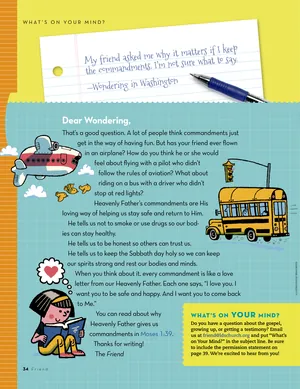 WHAT'S ON YOUR MIND?
My friend asked me why it matters if I keep
the commandments. I'm not sure what to say.
—Wondering in Washington
Dear Wondering,
That's a good question. A lot of people think commandments just
get in the way of having fun. But has your friend ever flown
in an airplone? How do you think he or she would
feel about flying with a pilot who didn't
follow the rules of aviation? What about
riding on a bus with a driver who didn't
stop at red lights?
Heavenly Father's commandments are His
loving way of helping us stay safe and return to Him.
He tells us not to smoke or use drugs so our bod-
ies can stay healthy.
He tells us to be honest so others can trust us.
He tells us to keep the Sabbath day holy so we can keep
our spirits strong and rest our bodies and minds.
When you think about it, every commandment is like a love
letter from our Heavenly Father. Each one says, "I love you. I
want you to be safe and happy. And I want you to come back
to Me."
You can read about why
Heavenly Father gives us
commandments in Moses 1:39.
Thanks for writing!
The Friend
WHAT'S ON YOUR MIND?
Do you have a question about the gospel,
growing up, or getting a testimony? Email
us at friend@ldschurch.org and put "What's
on Your Mind?" in the subject line. Be sure
to include the permission statement on
page 39. We're excited to hear from you!
34 Friend